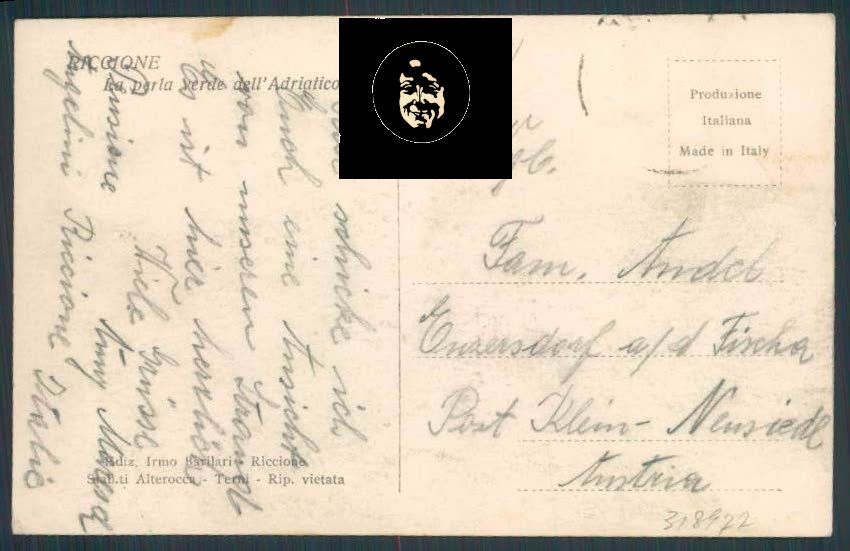 RICCIONE
La perla verde dell'Adriatico
schicke ich
Euch eine Ansicht
von unserem Strand
Es ist hier herrlich
Viele Grüsse
Pensione
Angelini Riccione Italie
Fam. Andel
Enzersdorf a/d Fischa
Post Klein-Neusiedl
Austria
318922
Produzione
Italiana
Made in Italy
Ediz. Irmo Sarilari - Riccione
Stab.ti Alterocca - Terni - Rip. vietata